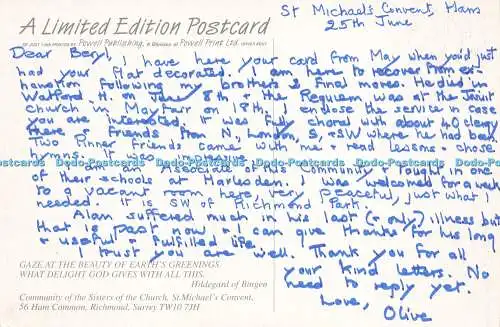 A Limited Edition Postcard
St Michael's Convent, Hams
25th June
Dear Beryl, I have here your card from May when you'd just
had your flat decorated. I am here to recover from ex-
haustion following my brother's 2 final moves. He died in
Watford H. on June 8th & the Requiem was at the joint
church in May our on 18th. I enclose the service in case
you are interested. It was fully choral with about 40 clergy
there & friends from N, London, S, & SW where he had been
Two Pinner friends came with me & read lessons & chose
hymns
I am an Associate of this Community & taught in one
of their schools at Harlesden. I was welcomed for a week
to a vacant room here very peaceful, just what I
needed. It is SW of Richmond Park.
Alan suffered much in his last (& only) illness but
that is past now. I can give thanks for his long
& useful & fulfilled life.
trust you are well. Thank you for all
your kind letters. No
need to reply yet.
Love,
Olive
GAZE AT THE BEAUTY OF EARTH'S GREENINGS.
WHAT DELIGHT GOD GIVES WITH ALL THIS.
Hildegard of Bingen
Community of the Sisters of the Church, St.Michael's Convent,
56 Ham Common, Richmond, Surrey TW10 7JH
Dodo-Postcards Dodo-Postcards Dodo-Postcards Dodo-Postcards